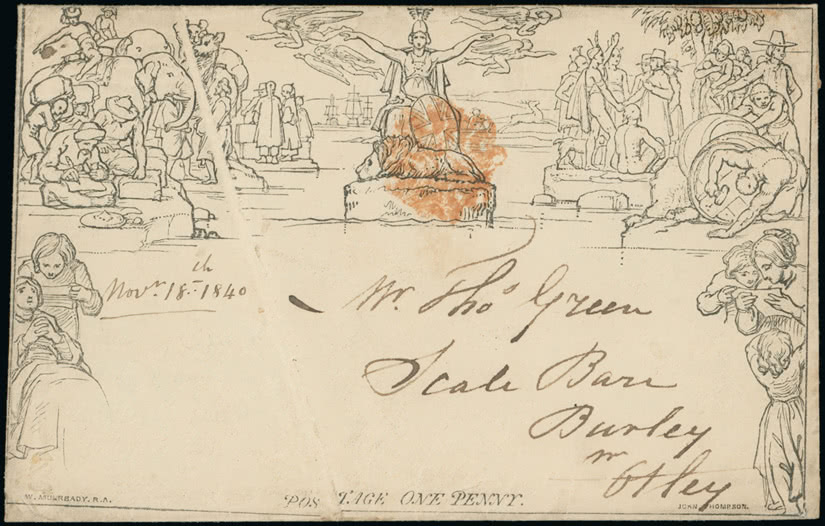 Novr. 18th 1840
Mr. Thos Green
Scale Barr
Burley
nr
Otley
W. MULREADY. R.A.
POSTAGE ONE PENNY.
JOHN THOMPSON.